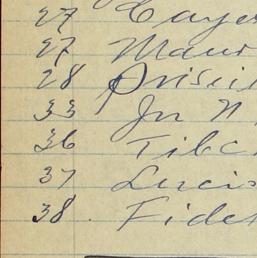 27 Cayet
27 Maur
28 Priscil
33 Jn N
36 Tibc
37 Lucis
38. Fidel